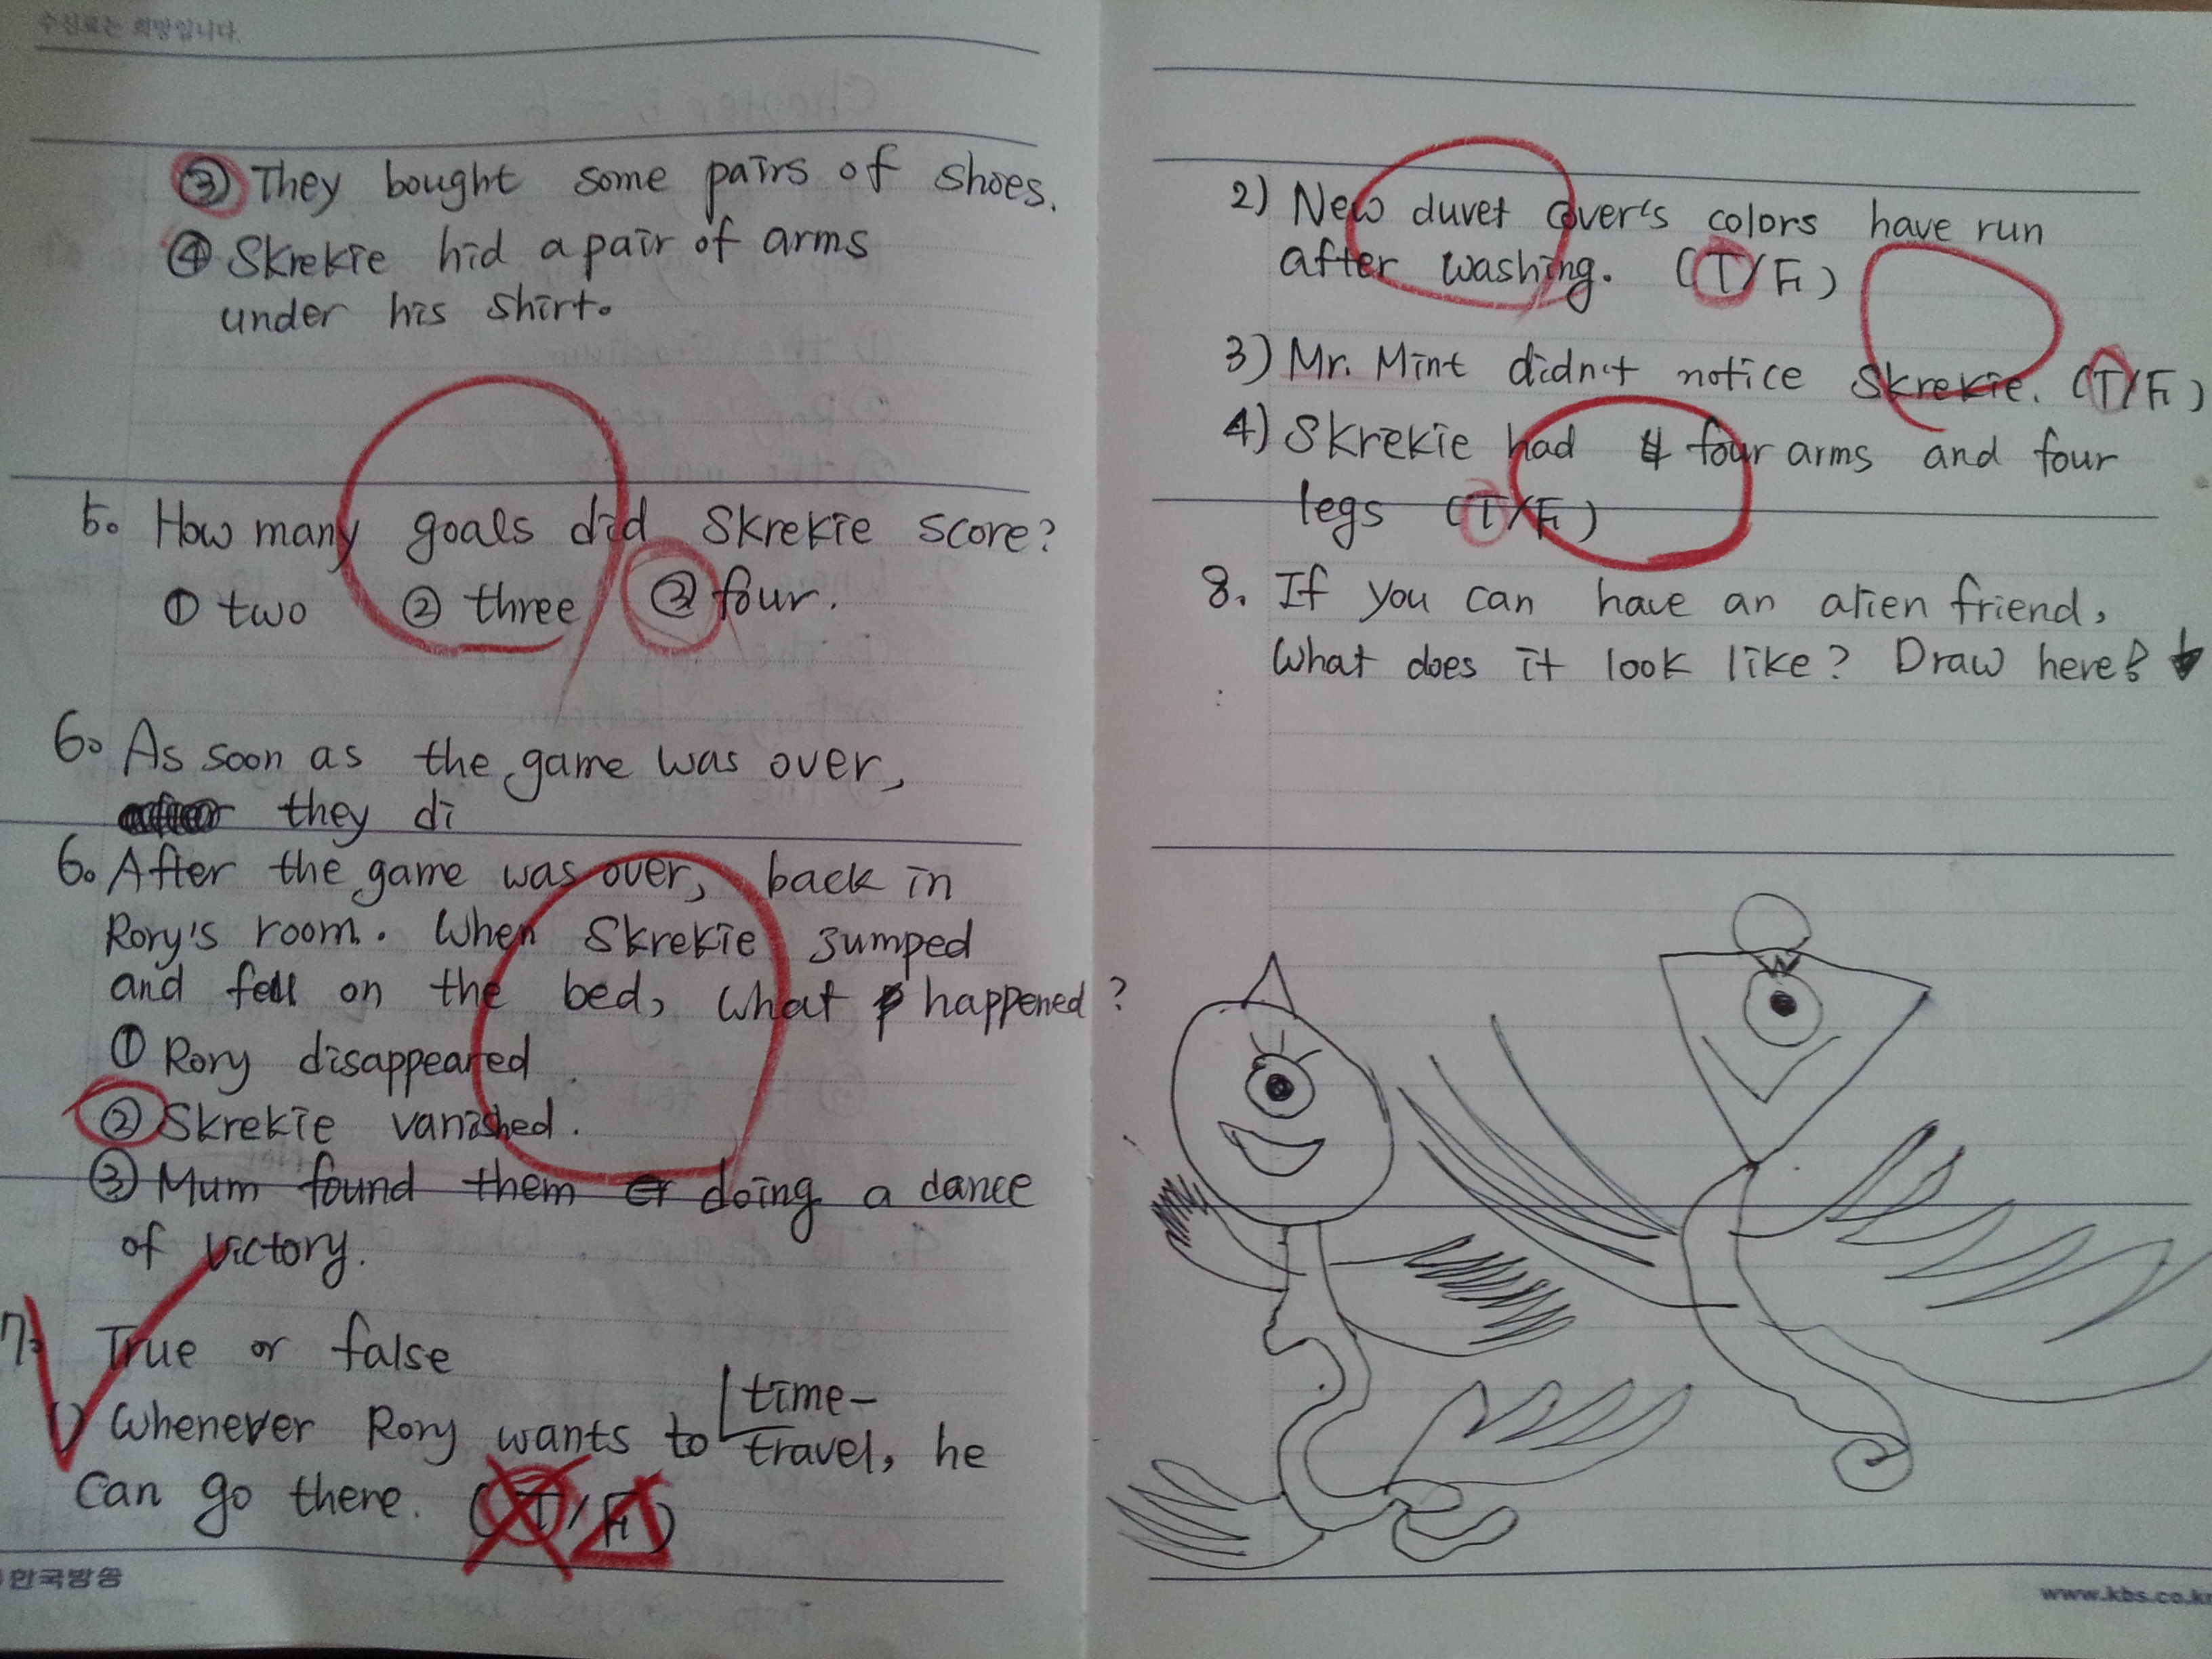 수신료는 희망입니다.
③ They bought some pairs of shoes.
④ Skrekie hid a pair of arms
under his shirt.
5. How many goals did Skrekie score?
① two ② three ③ four.
6. As soon as the game was over,
they di
6. After the game was over, back in
Rory's room. When Skrekie jumped
and fell on the bed, what happened?
① Rory disappeared.
② Skrekie vanished.
③ Mum found them doing a dance
of victory.
7. True or false
1) Whenever Rory wants to time-
travel, he
can go there. (T/F)
한국방송
2) New duvet cover's colors have run
after washing. (T/F)
3) Mr. Mint didn't notice Skrekie. (T/F)
4) Skrekie had four arms and four
legs (T/F)
8. If you can have an alien friend,
What does it look like? Draw here! ↓
www.kbs.co.kr